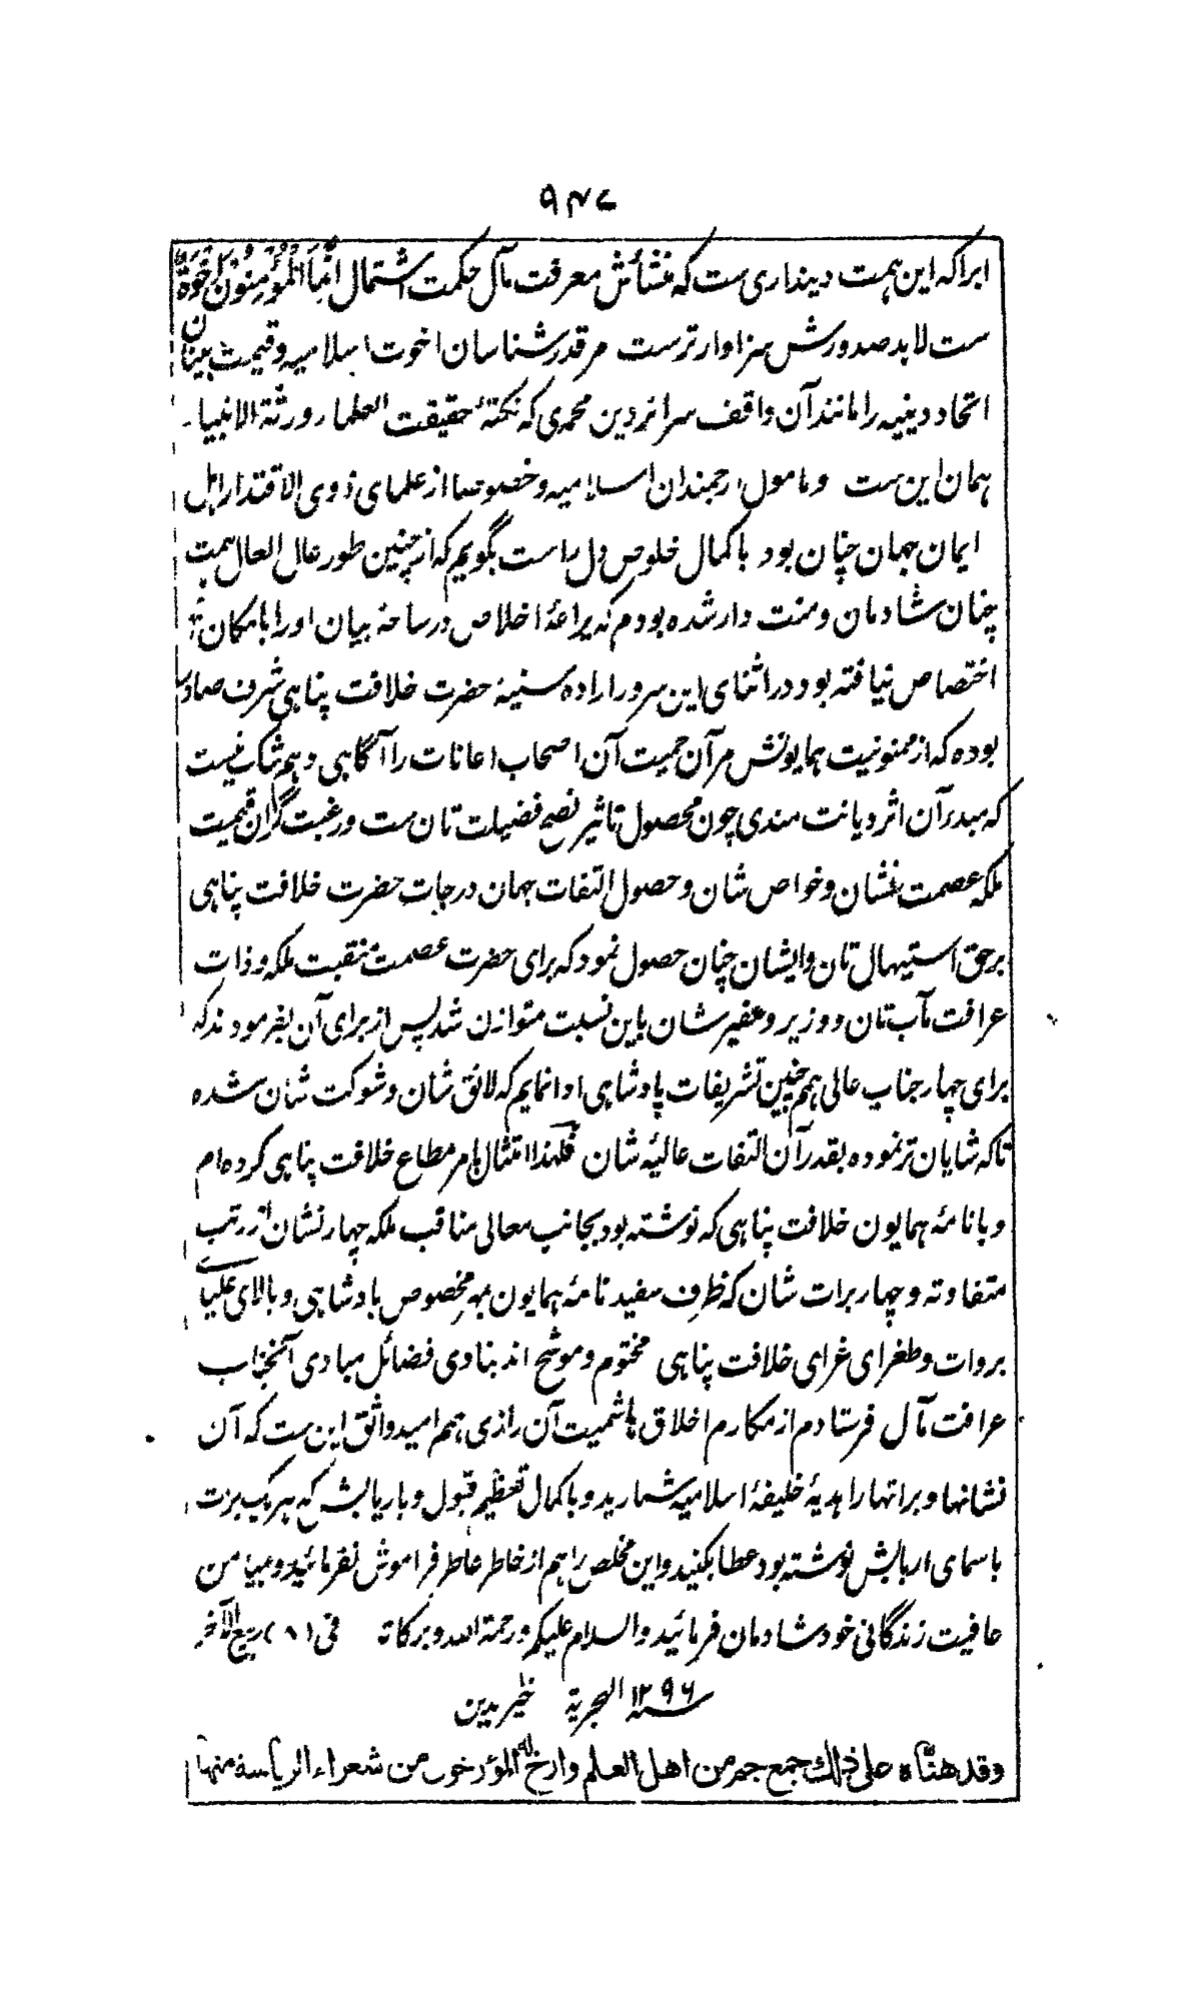 ٩٣٧
ابراکه این همت دینداری ست که منشائش معرفت مآل حکمت اشتمال اِنَّمَا الْمُؤْمِنُوْنَ اِخْوَةٌ
ست لابد صدورش سزاوارترست مر قدرشناسان اخوت اسلامیه وقیمت بینان
اتحاد دینیه را مانند آن واقف سرائر دین محمدی که نکتهٔ حقیقت العلماء ورثة الانبیاء
همان این ست ومامول ارجمندان اسلامیه وخصوصا از علمای ذوی الاقتدار اهل
ایمان همان چنان بود باکمال خلوص دل راست بگویم که ازچنین طور عال العال همت
چنان شادمان ومنت دار شده بودم که یراعهٔ اخلاص درساحهٔ بیان اورا بامکان
اختصاص نیافته بود ودر اثنای این سرور ارادهٔ سنیهٔ حضرت خلافت پناهی شرف صادر
بوده که از ممنونیت همایونش مر آن حمیت آن اصحاب اعانات را آگاهی دهم شک نیست
که مبدر آن اثر دیانت مندی چون محصول تاثیر نصح فضیلت تان ست ورغبت گران قیمت
ملکه عصمت نشان وخواص شان وحصول التفات همان درجات حضرت خلافت پناهی
برحق استیهال تان وایشان چنان حصول نمود که برای حضرت عصمت منقبت ملکه وذات
عرافت مآب تان ووزیر وسفیر شان باین نسبت متوازن شد پس از برای آن بفرمودند که
برای چهار جناب عالی هم چنین تشریفات پادشاهی ادا نمایم که لائق شان وشوکت شان شده
تاکه شایان تر نموده بقدر آن التفات عالیهٔ شان فلهذا امتثال بامر مطاع خلافت پناهی کرده ام
وبا نامهٔ همایون خلافت پناهی که نوشته بود بجانب معالی مناقب ملکه چهار نشان از رتب
متفاوته وچهار برات شان که ظرف مفید نامهٔ همایون بمهر مخصوص بادشاهی وبالای علیای
بروات وطغرای غرای خلافت پناهی مختوم وموشح اند بنادی فضائل مبادی آنجناب
عرافت مآل فرستادم از مکارم اخلاق هاشمیت آن رازی هم امید واثق این ست که آن
نشانها وبراتها را هدیهٔ خلیفهٔ اسلامیه شمارید وباکمال تعظیم قبول وباربابش که بهریک برت
باسمای اربابش نوشته بود عطا بکنید واین مخلص را هم از خاطر عاطر فراموش نفرمائید وبپیا من
عافیت زندگانی خود شادمان فرمائید والسلام علیکم ورحمة الله وبرکاته فی (٨) ربیع الآخر
سنه ١٢٩٦ الهجریة خیرالدین
وقد هنّاه علی ذلك جمع جم من اهل العلم وارخ له المؤرخون من شعراء الریاسة منها